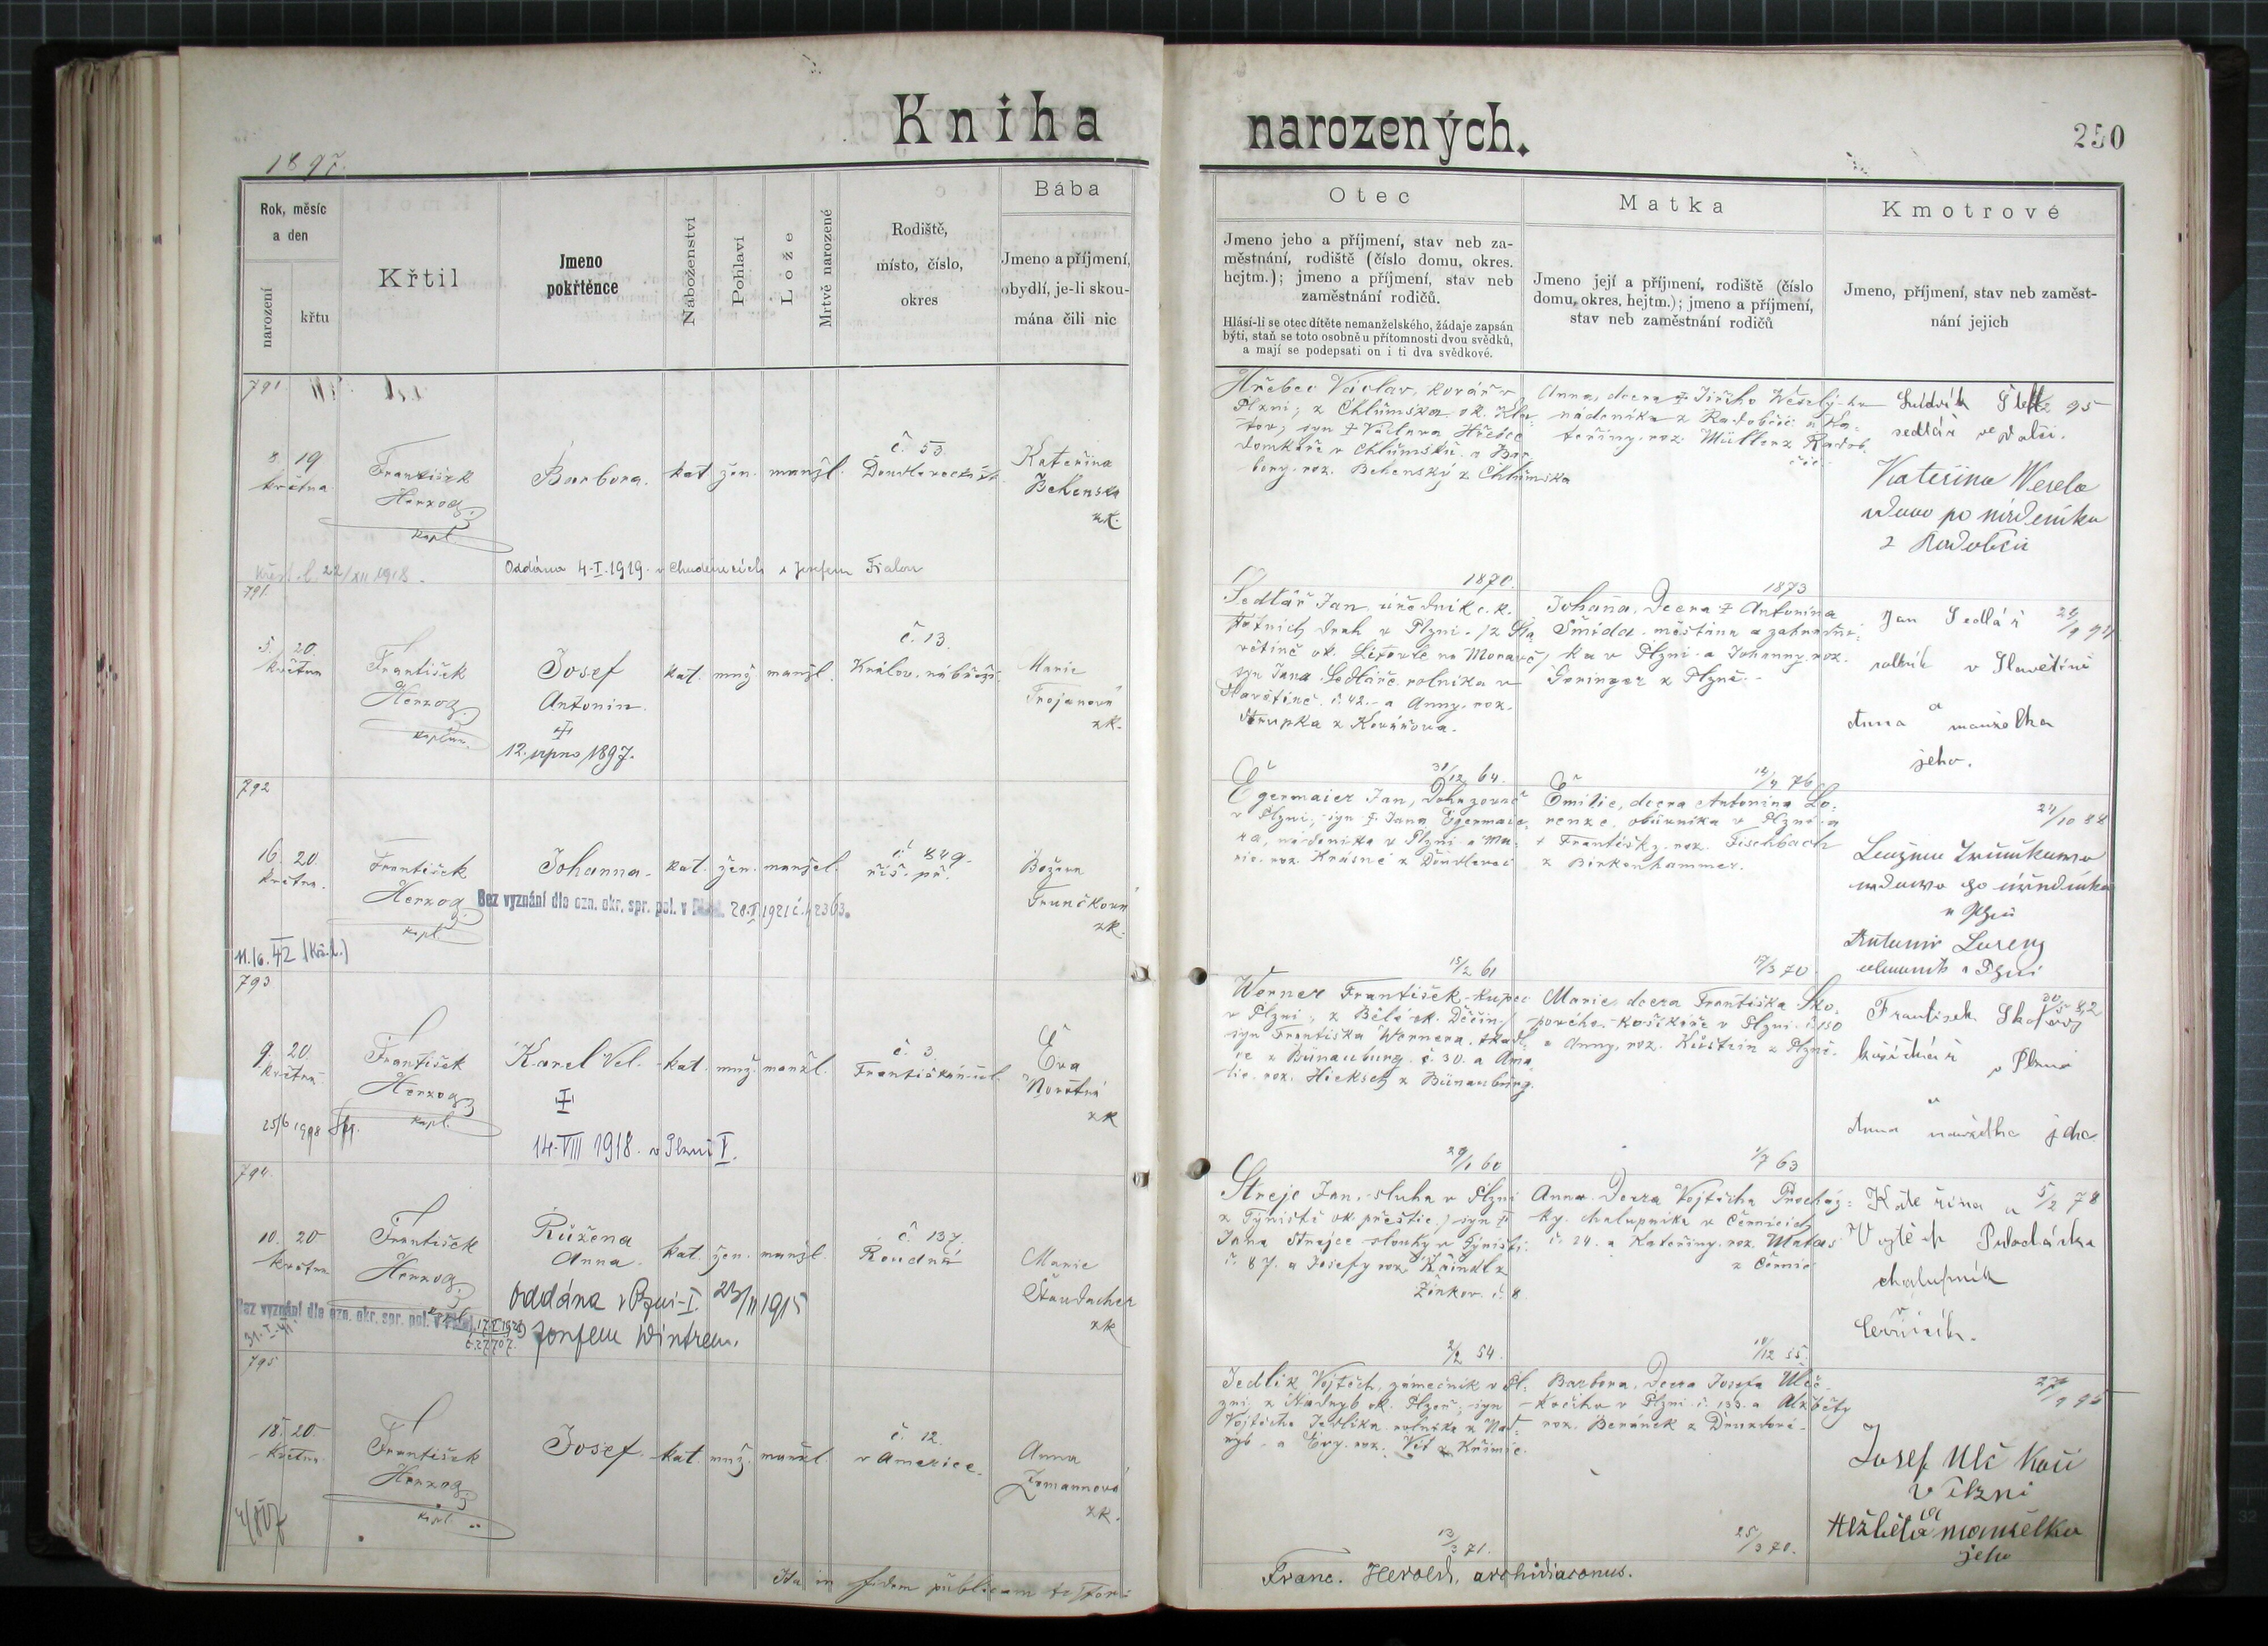 Kniha
narozených.
250
1897.
Rok, měsíc
a den
narození
křtu
Křtil
Jmeno
pokřtěnce
Náboženství
Pohlaví
Lože
Mrtvě narozené
Rodiště,
místo, číslo,
okres
Bába
Jmeno a příjmení,
obydlí, je-li skou-
mána čili nic
Otec
Jmeno jeho a příjmení, stav neb za-
městnání, rodiště (číslo domu, okres.
hejtm.); jmeno a příjmení, stav neb
zaměstnání rodičů.
Hlásí-li se otec dítěte nemanželského, žádaje zapsán
býti, staň se toto osobně u přítomnosti dvou svědků,
a mají se podepsati on i ti dva svědkové.
Matka
Jmeno její a příjmení, rodiště (číslo
domu, okres, hejtm.); jmeno a příjmení,
stav neb zaměstnání rodičů
Kmotrové
Jmeno, příjmení, stav neb zaměst-
nání jejich
791
8. 19
května
František
Herzog
kapl.
Barbora.
kat. žen. manžl.
č. 53.
Kateřina
Bekenska
zk.
Hřebec Václav, kovář v
Plzni, z Chlumska ok. Kla-
tov, syn † Václava Hřebce
domkáře v Chlumsku a Bar-
bory roz. Bekenský z Chlumska
Anna, dcera † Jiřího
nádeníka z Radobčic a Ka-
teřiny, roz. Müller z Radob-
čic.
95
Kateřina Wesela
vdova po nádeníku
z Radobčic
22/XII 1918.
Oddána 4-I.1919. v Chudenicích s Josefem Fialou
1870.
1873
791.
5. 20.
května
František
Herzog
kaplan.
Josef
Antonin.
†
12. srpna 1897.
kat. muž. manžl.
č. 13.
Králov. nábřeží
Marie
Trojanová
zk.
Sedlář Jan, úředník c. k.
státních drah v Plzni, z Sla-
větině ok. Litovle na Moravě,
syn Jana Sedláře, rolníka v
Slavětině č. 42. a Anny, roz.
Stupka z Kovářova.
Johana, dcera † Antonína
Šmída, měštana a zahradní-
ka v Plzni a Johanny, roz.
Geringer z Plzně.
Jan Sedlář
rolník v Slavětíně
a
Anna manželka
jeho.
31/12 64.
792
16. 20.
května.
František
Herzog
kapl.
Johanna.
kat. žen. manžel.
č. 849.
říš. př.
Božena
Trunčková
zk.
Bez vyznání dle ozn. okr. spr. pol. v
Egermaier Jan,
v Plzni, syn † Jana Egermaie-
ra, nádeníka v Plzni a Ma-
rie roz. Krásné z Doudlevec
Emilie, dcera Antonína Lo-
renze, obuvníka v Plzni a
† Františky, roz. Fischbach
z Birkenhammer.
24/10 88
vdova po úředníku
v Plzni
Antonín Lorenz
15/2 61
17/3 70
793
9. 20.
května
František
Herzog
kapl.
Karel Vel.
†
14-VIII 1918. v Plzni I.
kat. muž. manžl.
č. 3.
Františkán. ul.
Eva
Novotná
zk
Werner František, kupec
v Plzni, z Bělé ok. Děčín,
syn Františka Wernera,
z Bünauburg č. 30. a Ama-
lie, roz. Hieksch z Bünauburg.
Marie, dcera Františka Sko-
pového, košíkáře v Plzni č. 130
a Anny, roz. Kirstein z Plzně.
František Skopový
košíkář v Plzni
a
Anna manželka jeho
29/1 60
1/7 63
794.
10. 20
května
František
Herzog
kapl.
Růžena
Anna.
kat. žen. manžl.
č. 137.
Roudná
Marie
Staudacher
zk
Oddána v Plzni-I. 23/11 1915
s Josefem Wintrem.
Bez vyznání dle ozn. okr. spr. pol. v
Streje Jan, sluha v Plzni
z Týniště ok. přeštic., syn †
Jana Strejce, slouhy v Týništi
č. 87. a Josefy roz. Kaindl z
Žinkov. č. 8.
Anna, dcera Vojtěcha Procház-
ky, chalupníka v Černicích
č. 24. a Kateřiny, roz. Matas
z Černic
Kateřina a 5/2 78
Vojtěch Procházka
chalupník
v
Černicích.
2/2 54.
10/12 55.
795
18. 20.
května.
František
Herzog
kapl.
Josef.
kat. muž. manžl.
č. 12.
v Americe.
Anna
Zemannová
zk.
Jedlík Vojtěch, zámečník v Pl-
zni, z Nadryb ok. Plzeň, syn
Vojtěcha Jedlíka, rolníka z Nad-
ryb, a Evy, roz. Vít z Křimic.
Barbora, dcera Josefa Ulče
kočího v Plzni č. 133. a Alžběty
roz. Beránek z Druzdové.
Josef Ulč kočí
v Plzni
a
Alžběta manželka
jeho
13/3 71.
25/3 70.
Ita in fidem publicam testor:
Franc. Herold, archidiaconus.